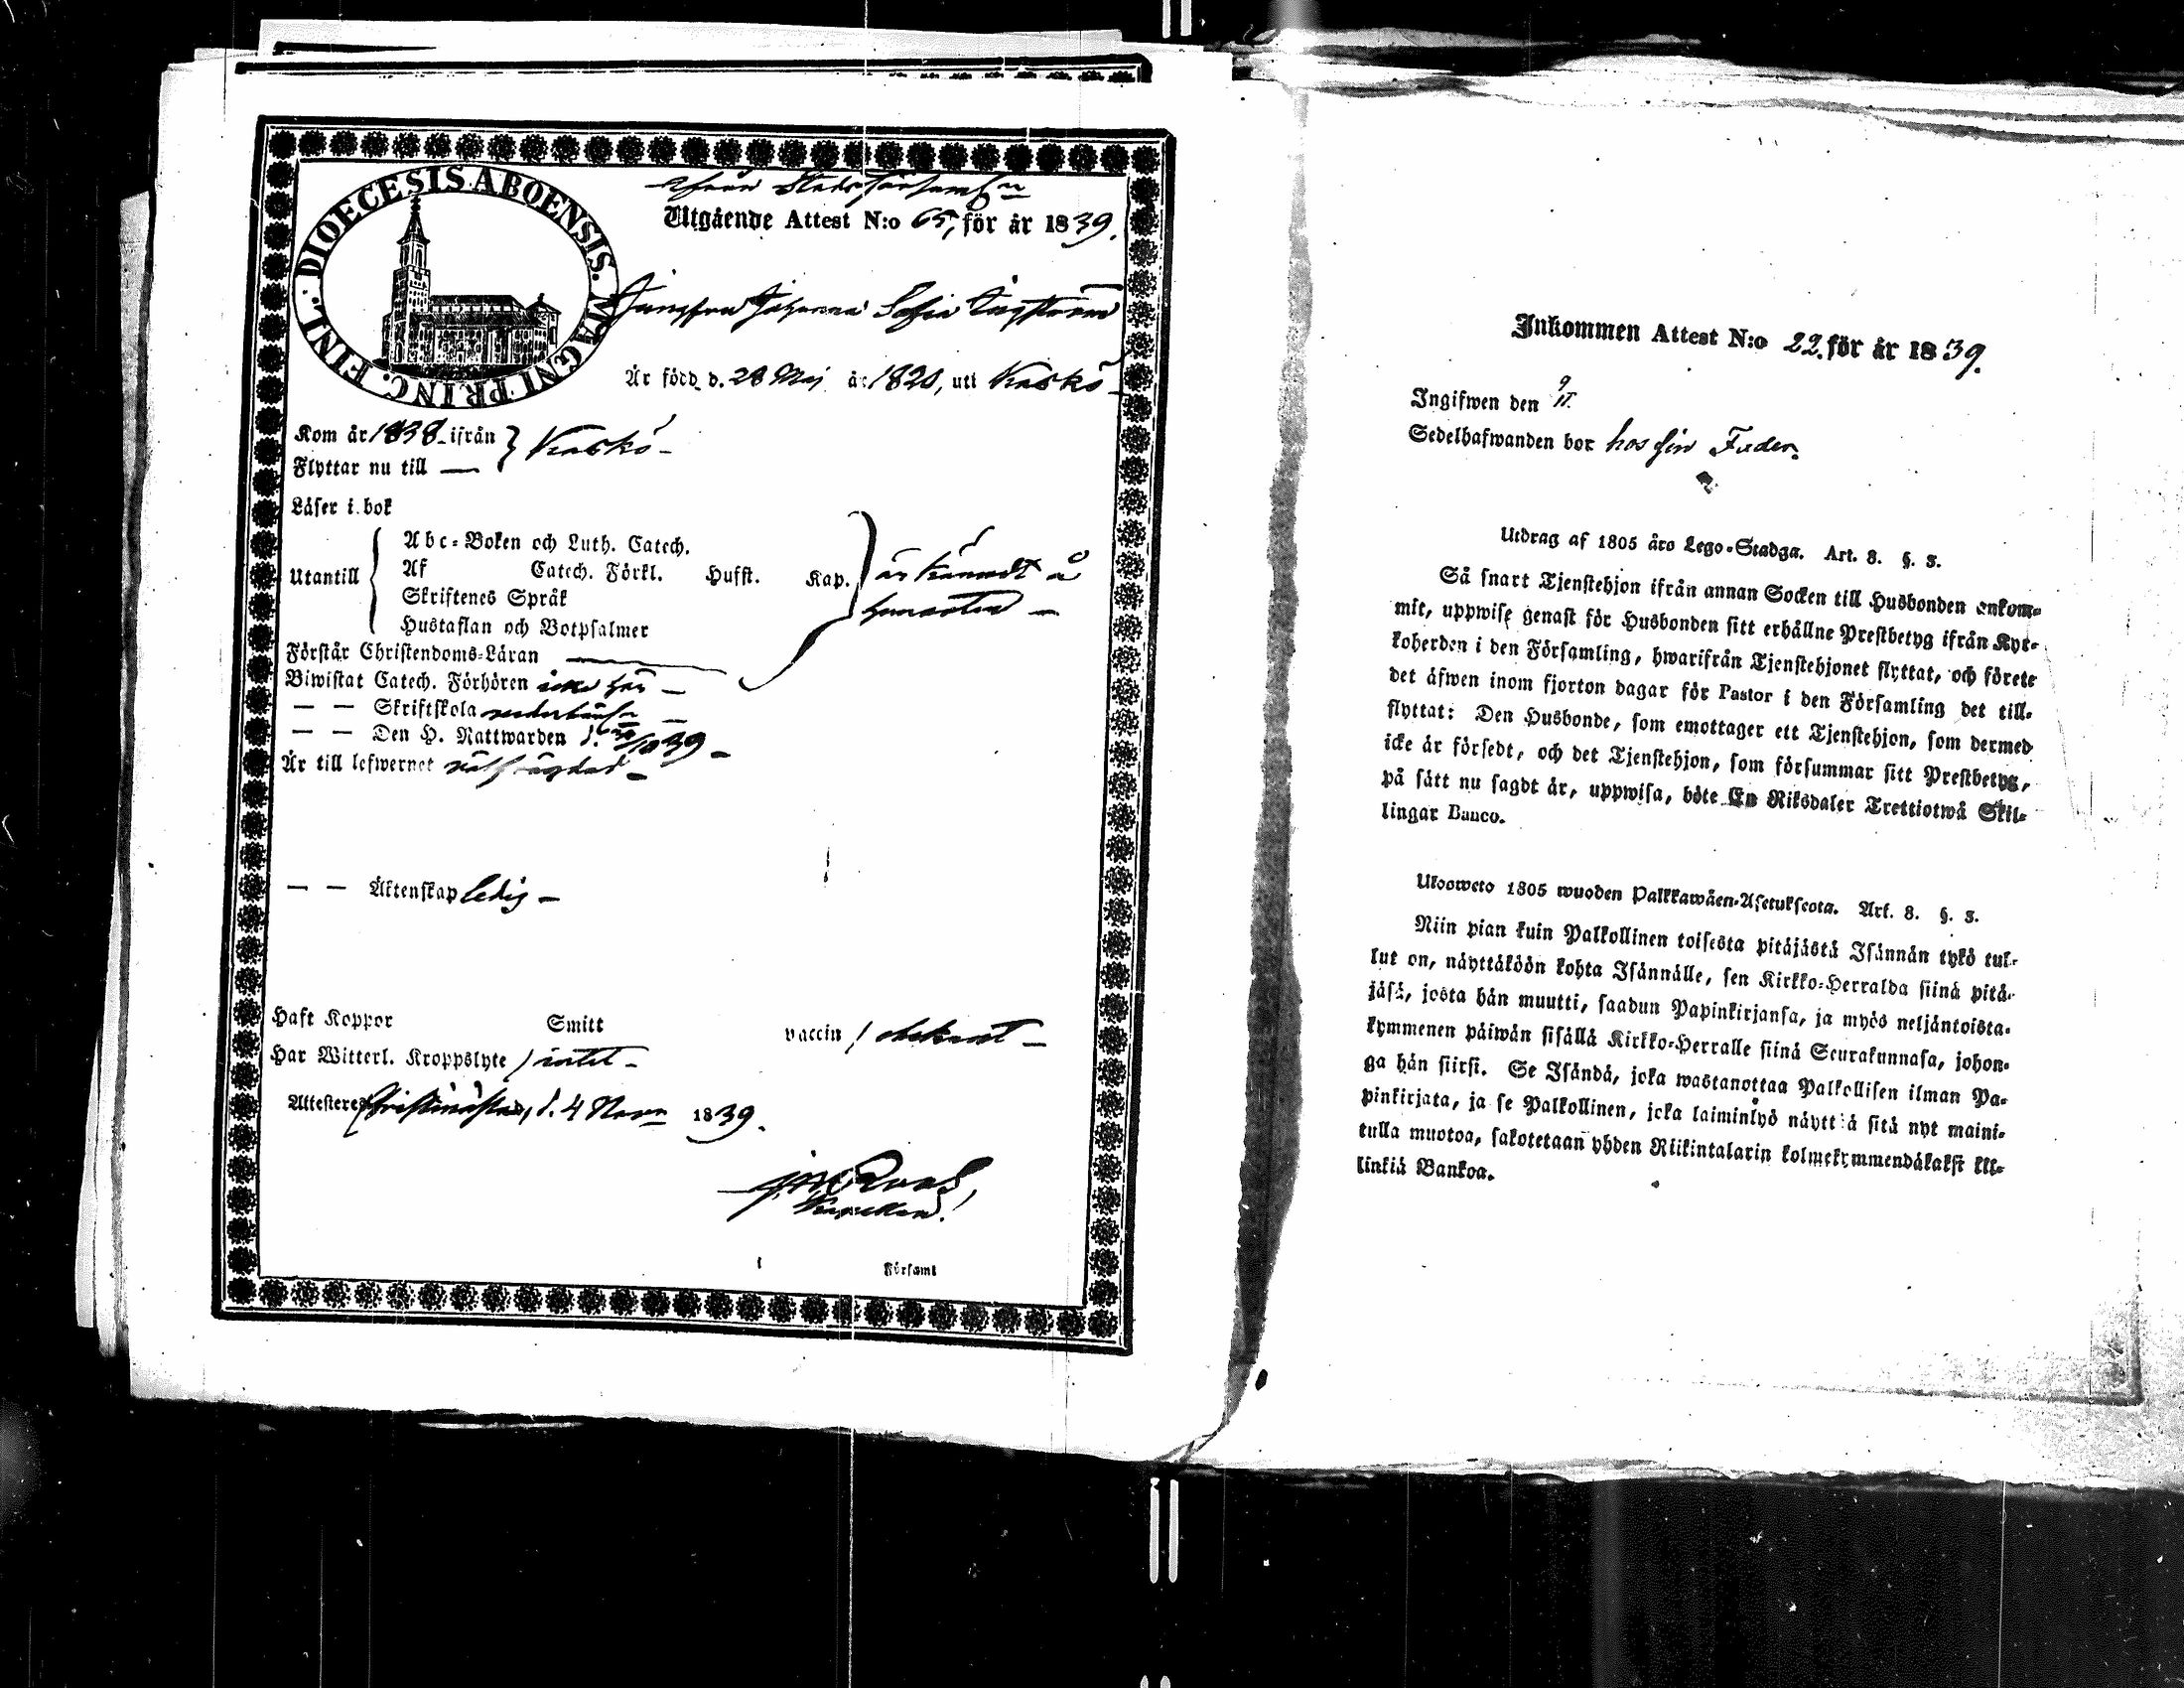 DIOECESIS ABOENSIS. MAGNI PRINC. FINL.
ifrån Stadsförsaml:n
Utgående Attest N:o 65, för år 1839.
Jungfru Johanna Sofia
Är född d. 28 Maj år 1820, uti Kaskö
Kom år 1838 ifrån } Kaskö
Flyttar nu till —
Läser i bok
Utantill { Abc-Boken och Luth. Catech.
Af Catech. Förkl. Husst. Kap. } är kändt å
Skriftenes Språk
hemorten —
Hustaflan och Botpsalmer
Förstår Christendoms-Läran
Biwistat Catech. Förhören icke här —
— — Skriftskola
— — Den H. Nattwarden d. /10 39 —
Är till lefwernet välfrägdad —
— — Äktenskap ledig —
Haft Koppor Smitt vaccin / obekant —
Har Witterl. Kroppslyte / intet —
Attesteres Christinestad, d. 4 Novr 1839.
Roos
Kapellan.
Församl
Inkommen Attest N:o 22. för år 1839.
Ingifwen den 9/11.
Sedelhafwanden bor hos sin Fader.
Utdrag af 1805 års Lego-Stadga. Art. 8. §. 3.
Så snart Tjenstehjon ifrån annan Socken till Husbonden ankom-
mit, uppwise genast för Husbonden sitt erhållne Prestbetyg ifrån Kyr-
koherden i den Församling, hwarifrån Tjenstehjonet flyttat, och förete
det äfwen inom fjorton dagar för Pastor i den Församling det till-
flyttat: Den Husbonde, som emottager ett Tjenstehjon, som dermed
icke är försedt, och det Tjenstehjon, som försummar sitt Prestbetyg,
på sätt nu sagdt är, uppwisa, böte En Riksdaler Trettiotwå Skil-
lingar Banco.
Ulosweto 1805 wuoden Palkkawäen-Asetuksesta. Art. 8. §. 3.
Niin pian kuin Palkollinen toisesta pitäjästä Isännän tykö tul-
lut on, näyttäköön kohta Isännälle, sen Kirkko-Herralda siinä pitä-
jäsä, josta hän muutti, saadun Papinkirjansa, ja myös neljäntoista-
kymmenen päiwän sisällä Kirkko-Herralle siinä Seurakunnasa, johon-
ga hän siirsi. Se Isändä, joka wastanottaa Palkollisen ilman Pa-
pinkirjata, ja se Palkollinen, joka laiminlyö näyttää sitä nyt maini-
tulla muotoa, sakotetaan yhden Riikintalarin kolmekymmendäkaksi kil-
linkiä Bankoa.